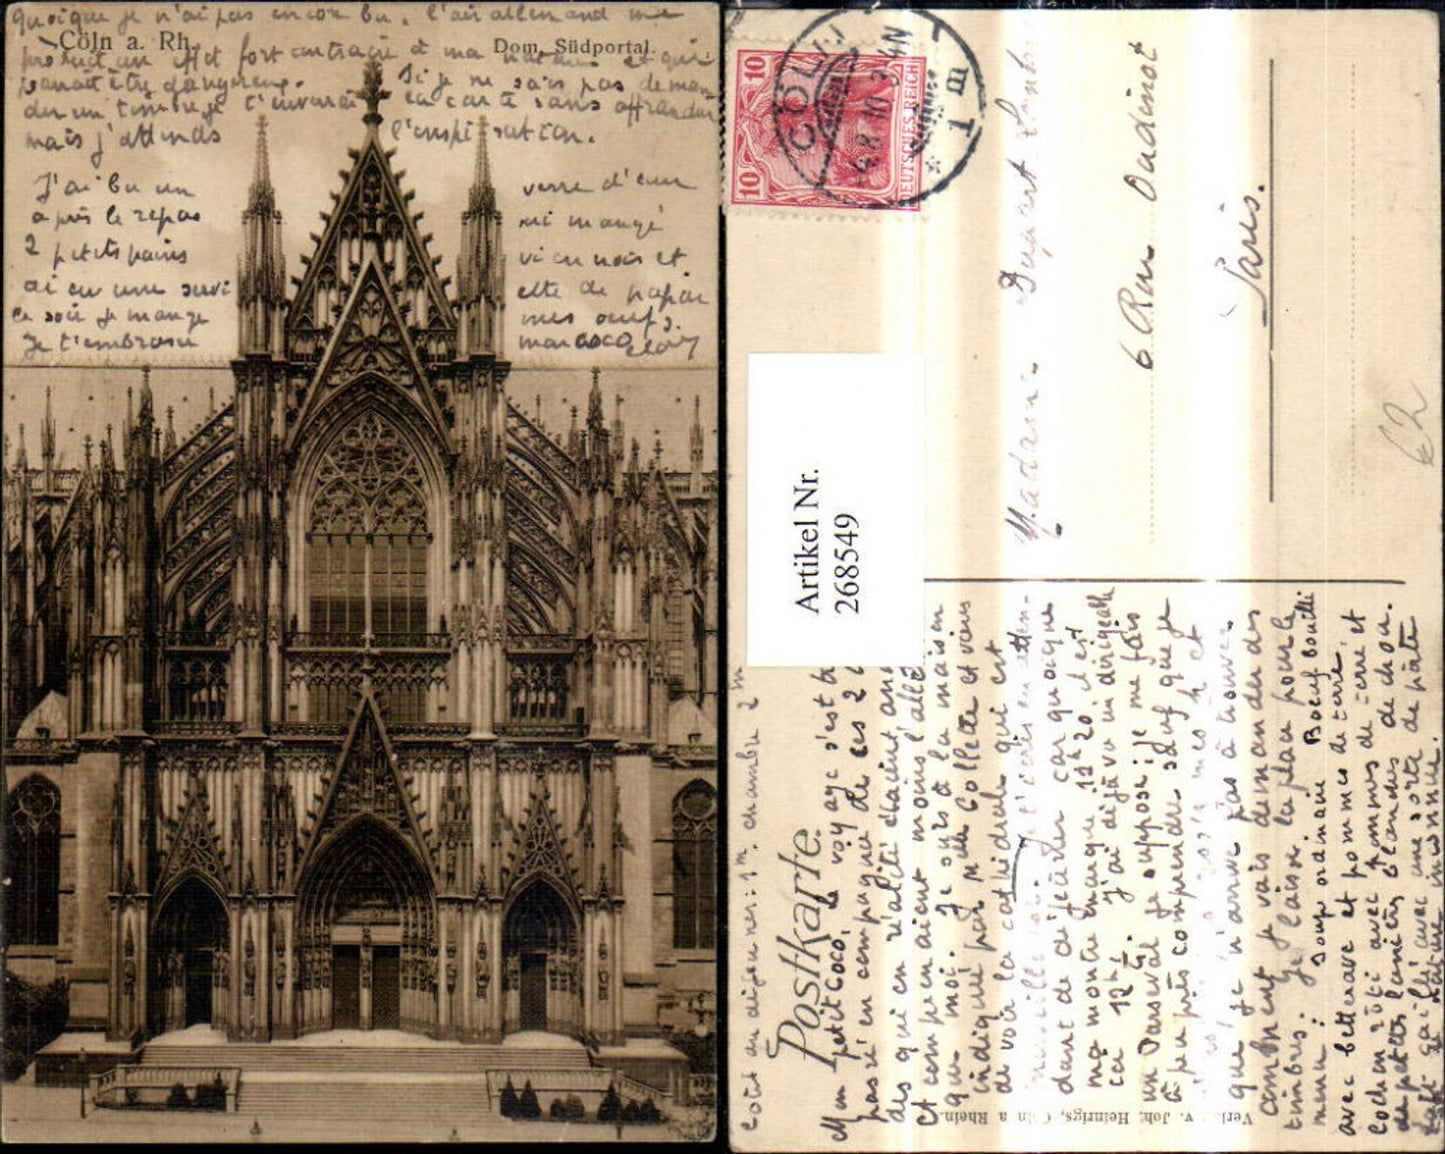 quoique je n'ai pas encore bu. l'air allemand me
Cöln a. Rh.
Dom, Südportal.
produit un effet fort contraire à ma nature et qui
paraît être dangereux. Si je ne sais pas deman
der un timbre je t'enverrai la carte sans affranchir
mais j'attends l'inspiration.
J'ai bu un verre d'eau
après le repas ai mangé
2 petits pains viennois et
ai eu une serviette de papier
ce soir je mange mes oeufs.
Je t'embrasse mon coco
10
10
DEUTSCHES REICH
CÖLN
4.8.10. 3-4N
* 1 m
Madame
6 Rue Oudinot
Paris.
62
Artikel Nr.
268549
Postkarte.
Verlag v. Joh. Heinrigs, Cöln a Rhein.
coût du déjeuner: 1 m. chambre 2 m
Mon petit Coco, Le voyage s'est
passé en compagnie de ces 2
des qui en réalité étaient
et comprenaient moins l'alle
que moi. Je suis à la maison
indiquée par Mlle Collette et viens
de voir la cathédrale qui est
merveilleuse. Je t'écris en atten-
dant de déjeuner car quoique
ma montre marque 11h 20 il est
ici 12h 1/4. J'ai déjà vu un dirigeable
un Parseval je suppose; je me fais
à peu près comprendre sauf que je
que je n'arrive pas à trouver
comment je vais demander des
timbres. Je laisse la place pour le
menu: soupe ordinaire Boeuf bouilli
avec betterave et pommes de terre,
cochon rôti avec pommes de terre et
de petites lanières blondes de chou.
lait caillé avec une sorte de pâte
de nature inconnue.